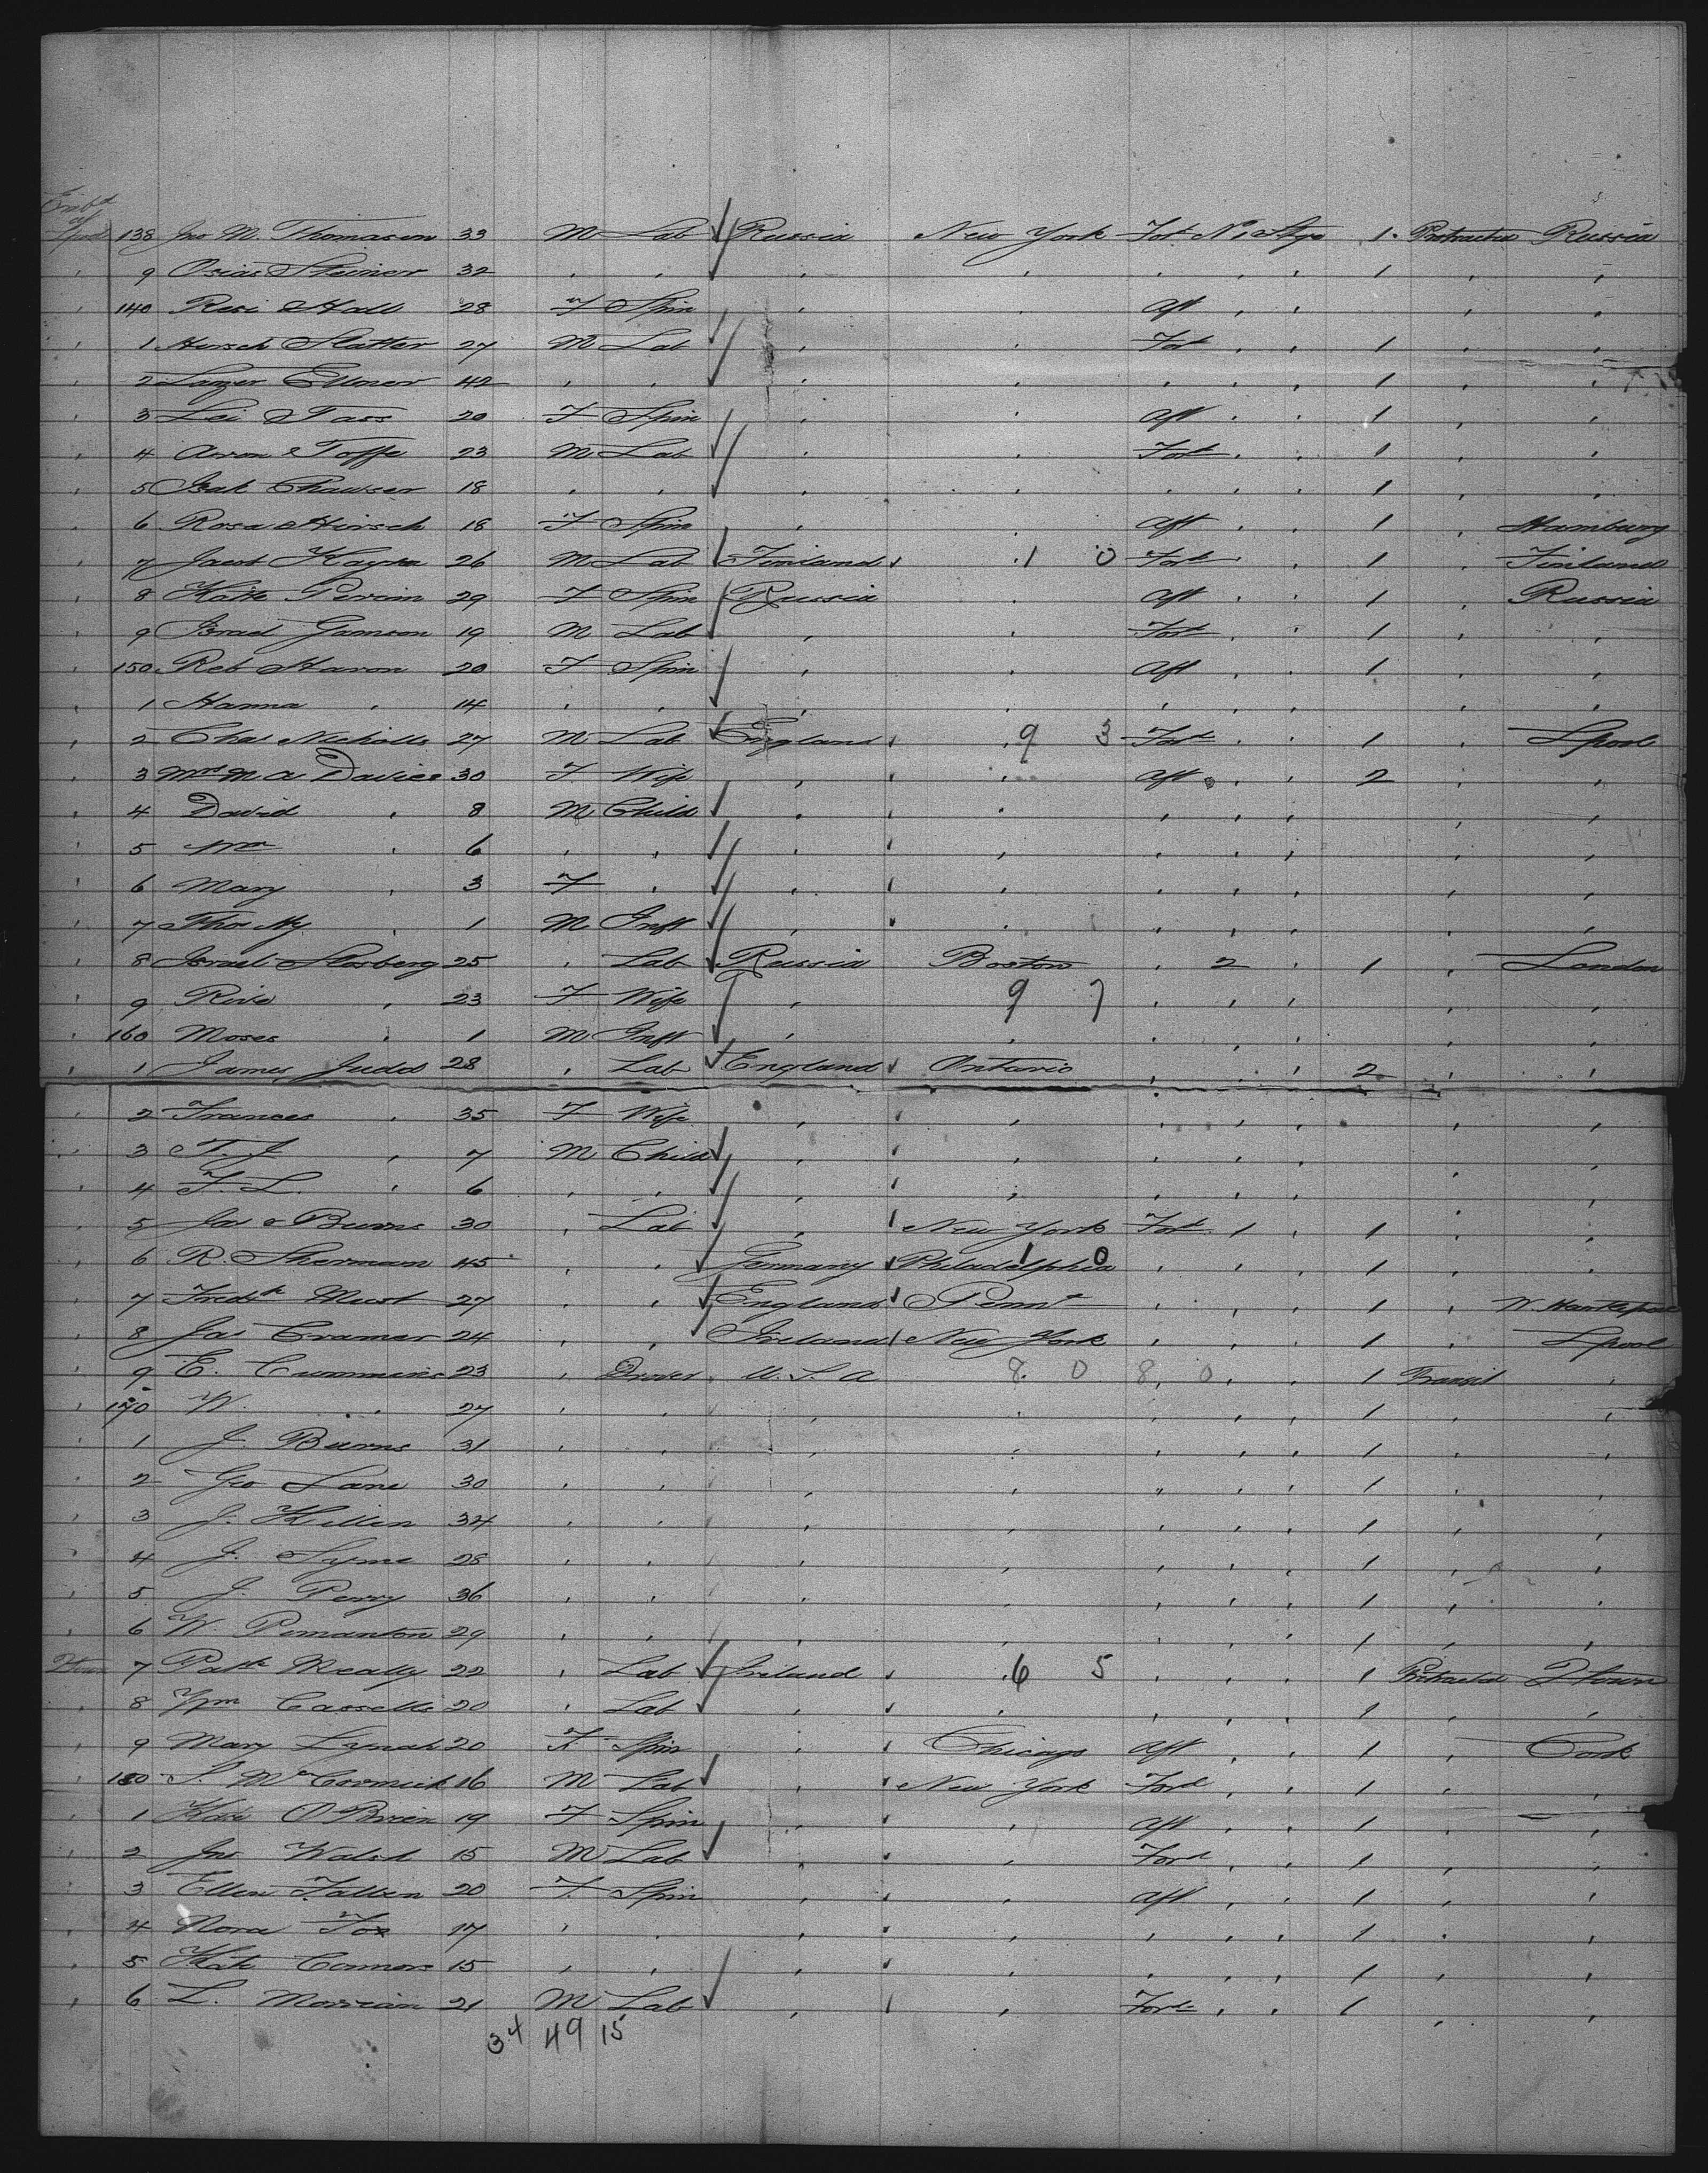 Emb^d
at
Lpool 138 Jno M. Thomason 33 M Lab Russia New York For^d No 1 Stge 1 Protracted Russia
9 Osias Steiner 32 1
140 Resi Hall 28 F Spin aft
1 Hersch Slatter 27 M Lab For^d 1
2 Lazer Ellner 42 1
3 Lei Tass 20 F Spin aft 1
4 Aron Toffe 23 M Lab For^d 1
5 Isak Chauser 18 1
6 Rosa Hirsch 18 F Spin aft 1 Hamburg
7 Jacob 26 M Lab Finland 1 0 For^d 1 Finland
8 29 F Spin Russia aft 1 Russia
9 Israel Gamson 19 M Lab For^d 1
150 Reb Haron 20 F Spin aft 1
1 Hanna 14
2 Chas Nicholls 27 M Lab England 9 3 For^d 1 Lpool
3 Mrs M. A Davies 30 F Wife aft 2
4 David 8 M Child
5 Wm 6
6 Mary 3 F
7 Thos Hy 1 M Inft
8 Israel Slosberg 25 Lab Russia Boston 2 1 London
9 Rive 23 F Wife 9 7
160 Moses 1 M Inft
1 James Judd 28 Lab England Ontario 2
2 Frances 35 F Wife
3 T. J 7 M Child
4 F. L. 6
5 Jas Burns 30 Lab New York For^d 1 1
6 R. Sherman 45 Germany Philadelphia 1 0 1
7 Fredk 27 England Penn^a 1 W. Hartlepool
8 Jas Cramer 24 Ireland New York 1 Lpool
9 E. Cummins 23 Drover U. S. A 8 0 8 0 1 Transit
170 W. 27 1
1 J. Burns 31 1
2 Geo Lane 30 1
3 J. Killen 34 1
4 J. Syme 28 1
5 J. Perry 36 1
6 W. Pemanton 29 1
Qtown 7 Patk Meally 22 Lab Ireland 6 5 1 Protracted Qtown
8 Wm Cassells 20 Lab 1
9 Mary Lynch 20 F Spin Chicago aft 1 Cork
180 S. McCormick 16 M Lab New York For^d 1
1 Kate O'Brien 19 F Spin aft 1
2 Jno Walsh 15 M Lab For^d 1
3 Ellen Fallen 20 F Spin aft 1
4 Nora Fox 17 1
5 Kate Connors 15 1
6 L. 21 M Lab For^d 1
34 49 15